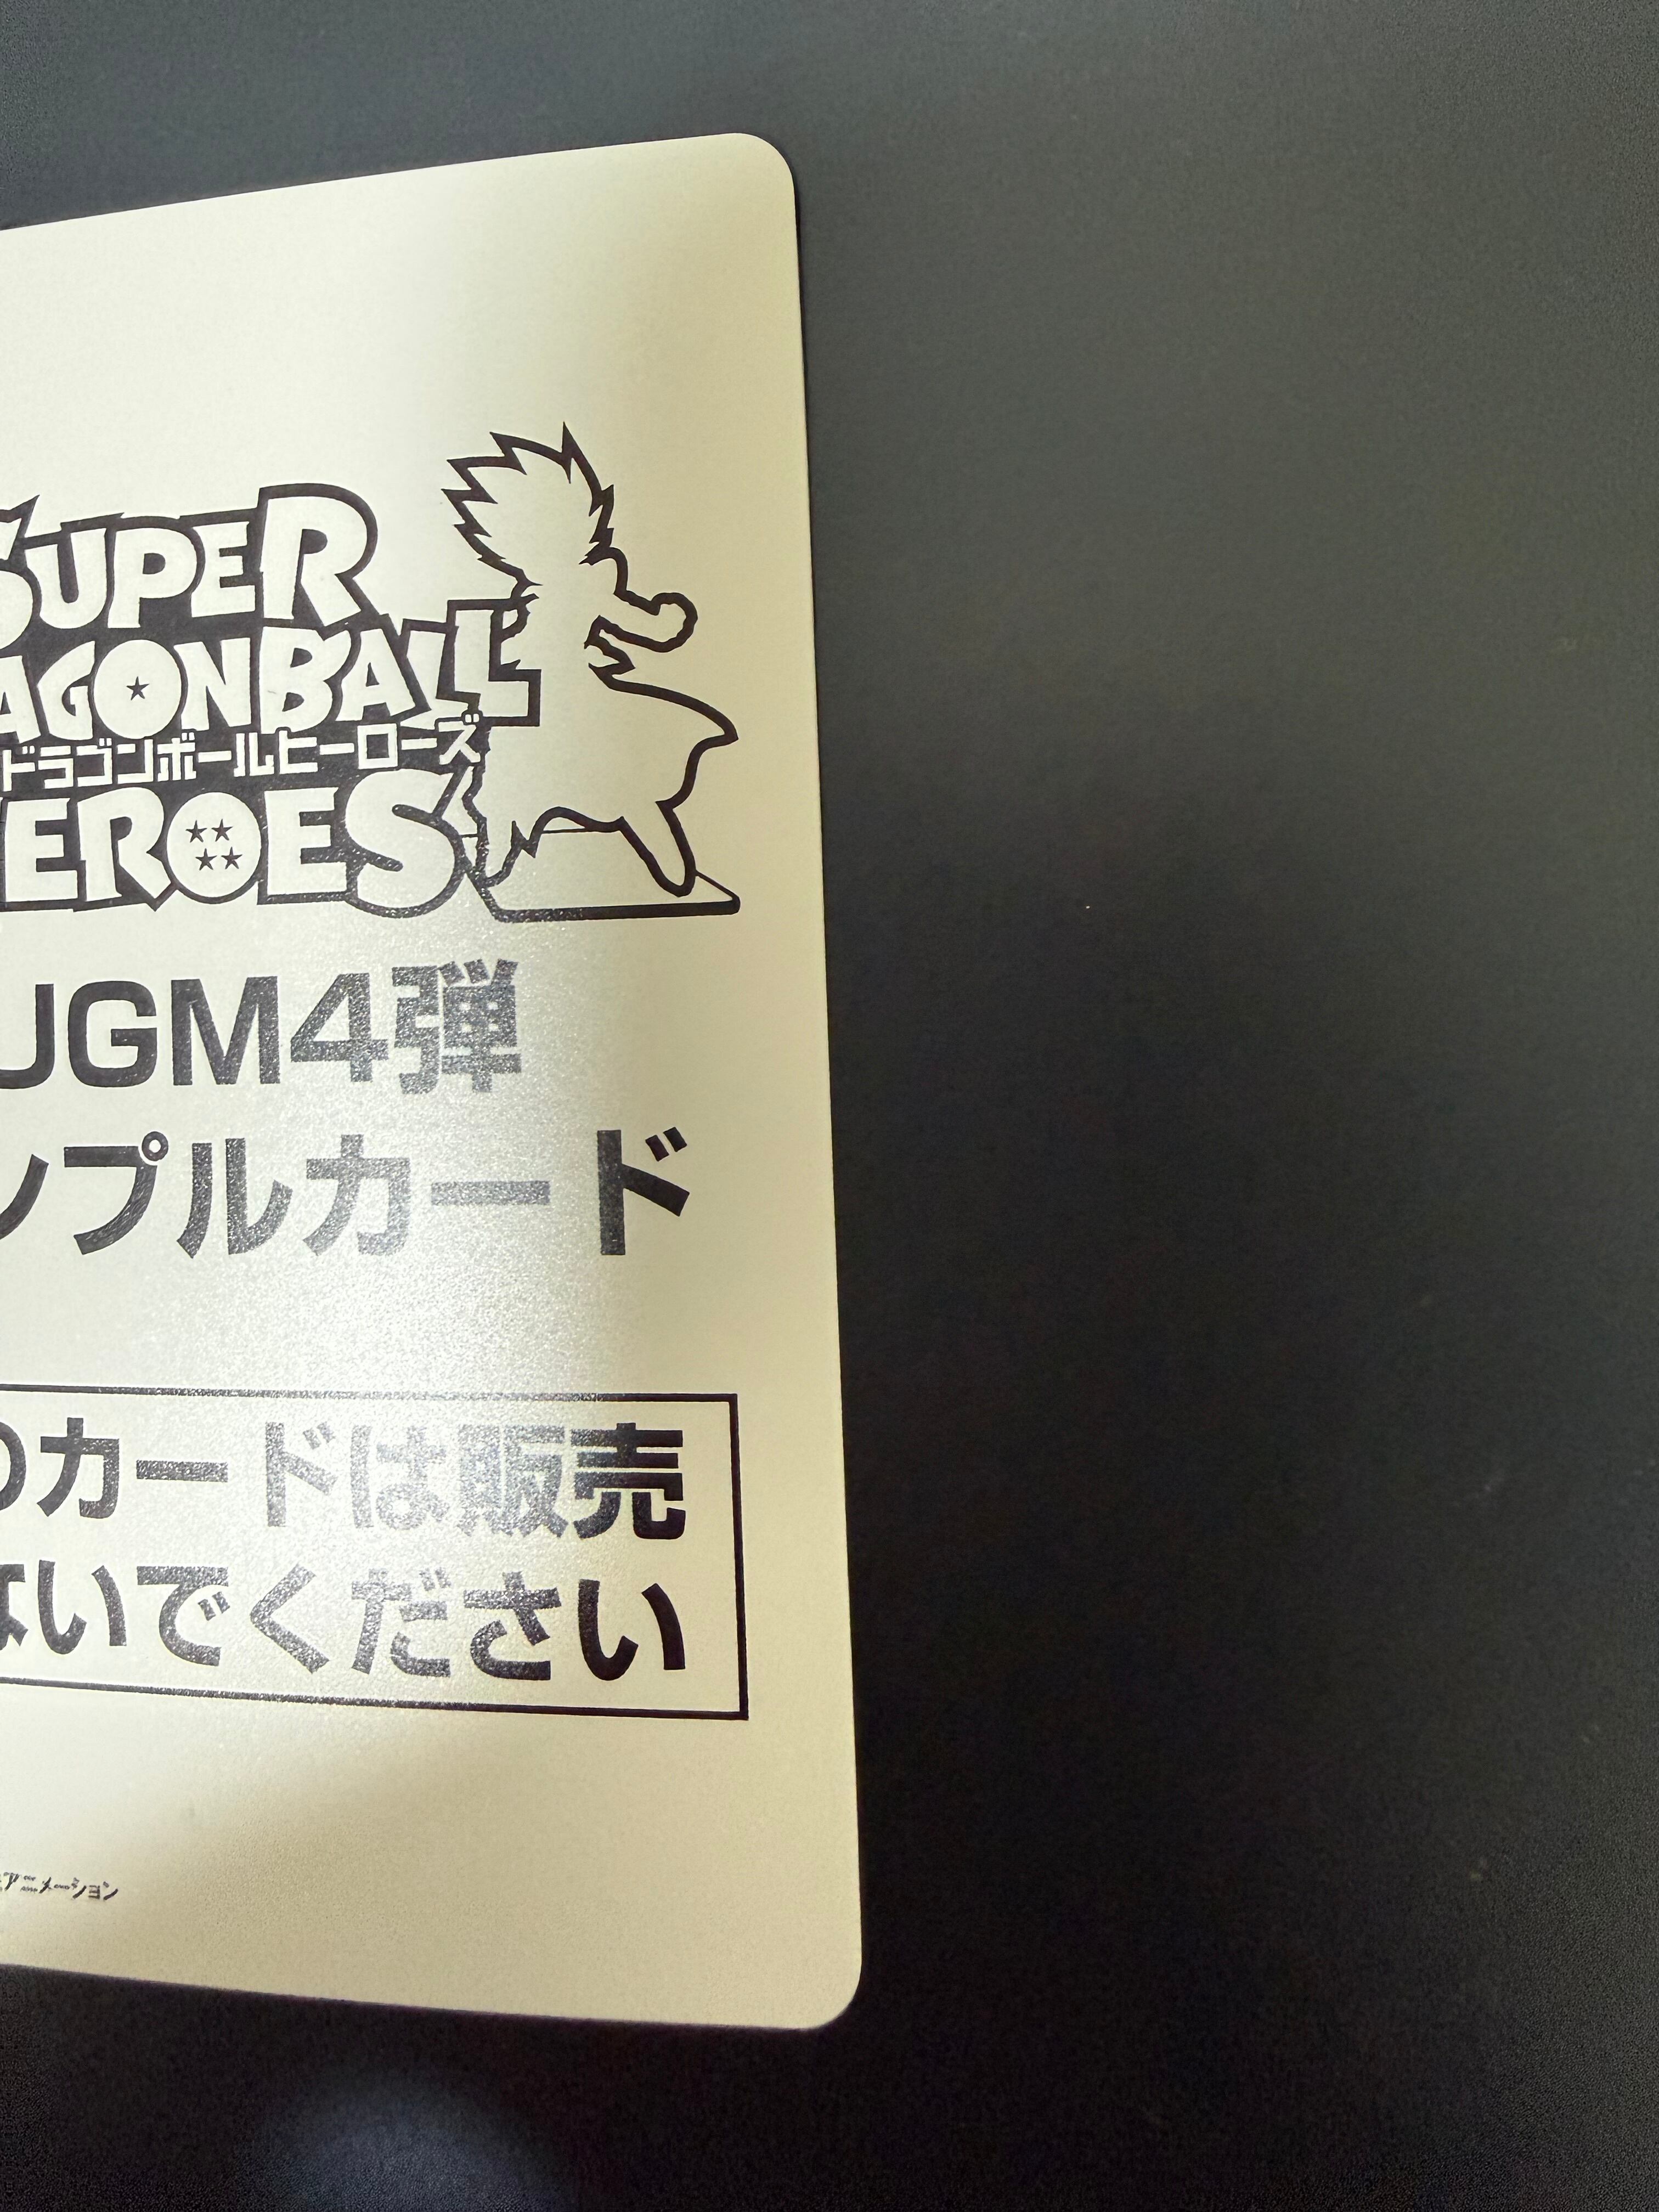 SUPER
AGONBALL
ドラゴンボールヒーローズ
EROES
UGM4弾
ンプルカード
のカードは販売
ないでください
アニメーション